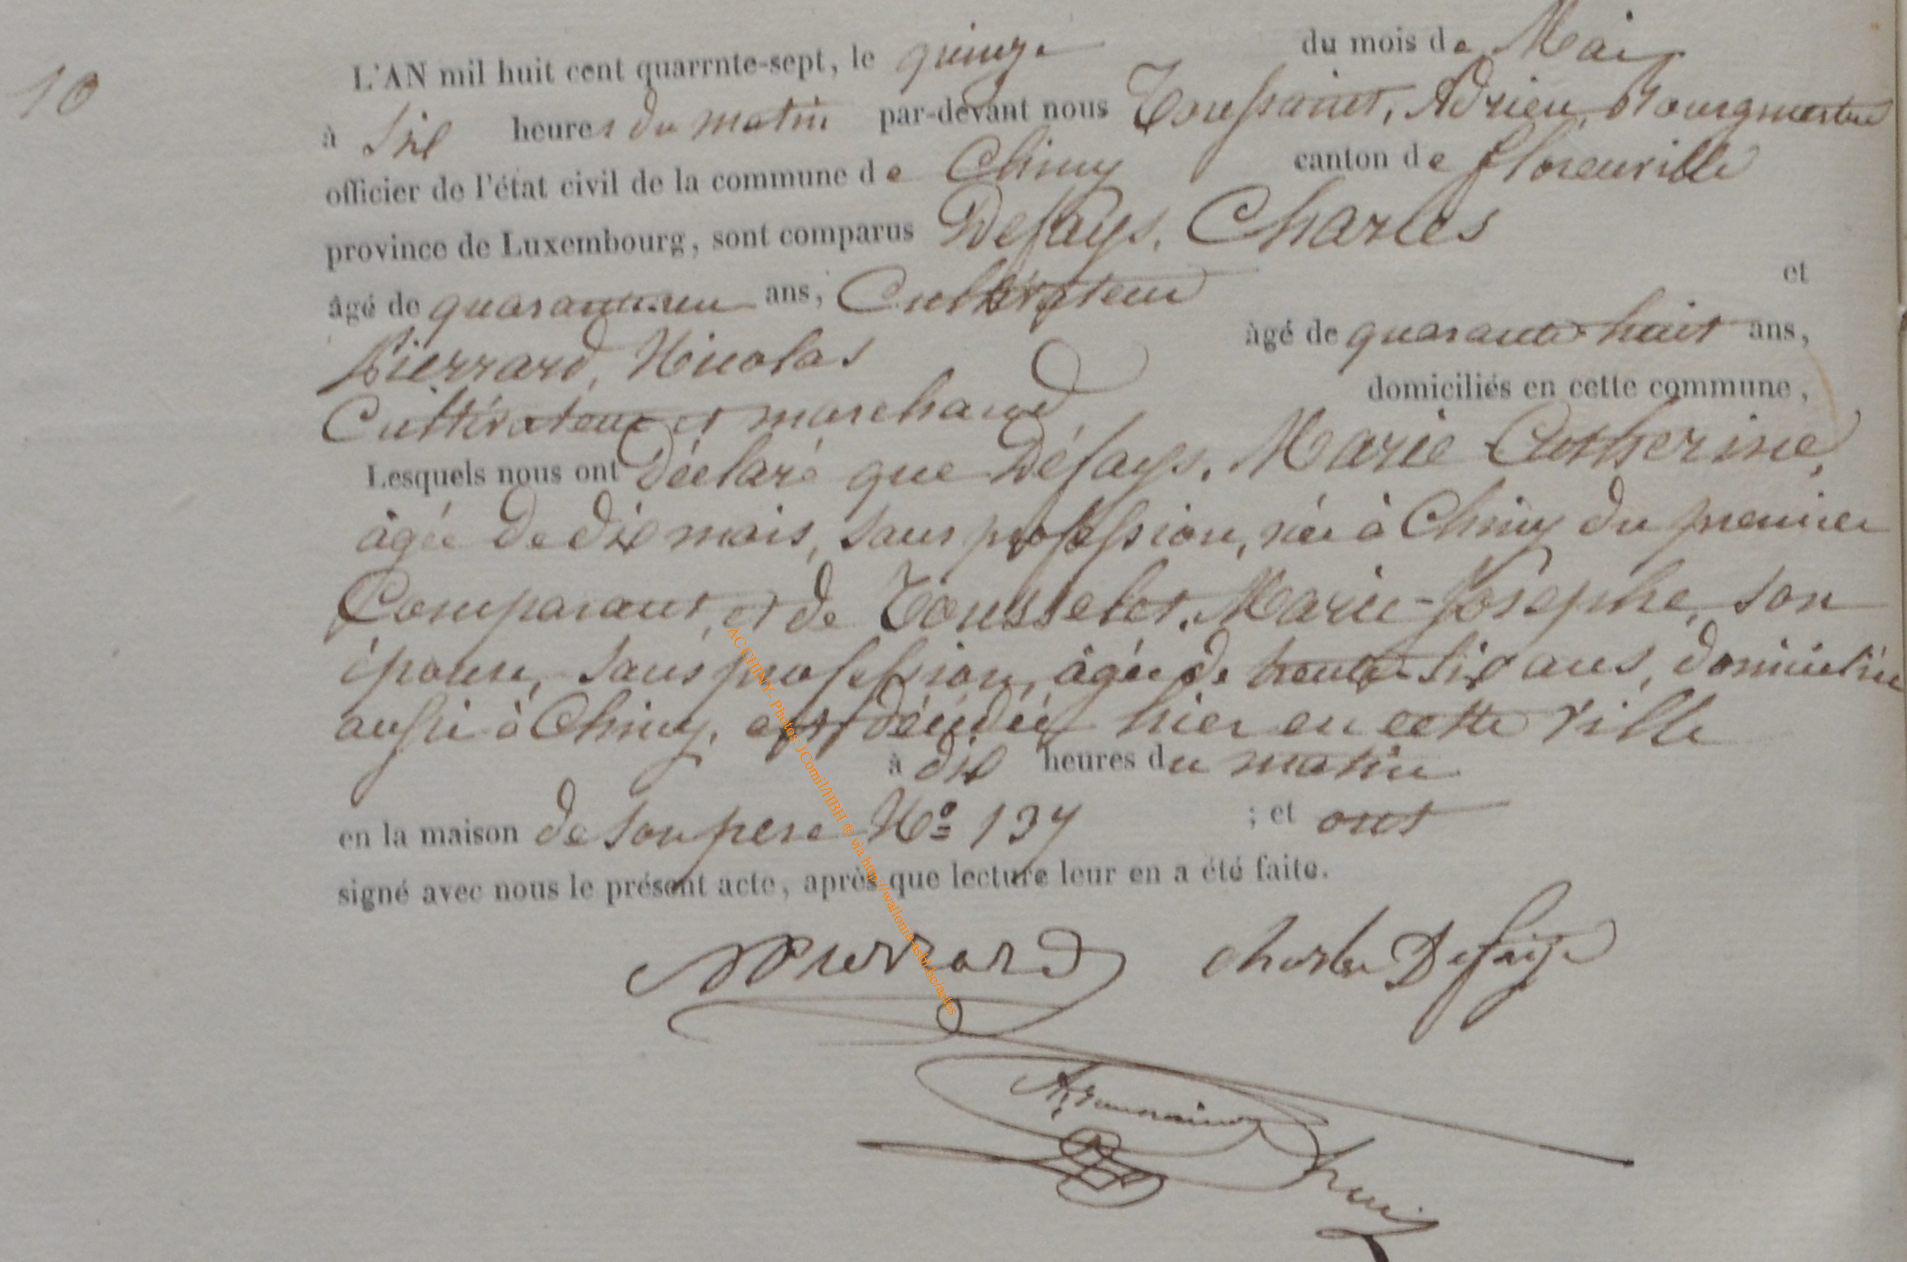 10
L'AN mil huit cent quarrnte-sept, le quinze du mois de Mai
à Six heures du matin par-devant nous Toussaint, Adrien, Bourgmestre
officier de l'état civil de la commune de Chiny canton de florenville
province de Luxembourg, sont comparus Defays, Charles
âgé de quarante-un ans, Cultivateur et
Pierrard, Nicolas âgé de quarante huit ans,
Cultivateur et marchand domiciliés en cette commune,
Lesquels nous ont Déclaré que Défays, Marie Catherine,
âgée de dix mois, sans profession, née à Chiny du premier
Comparant, et de Tousselet, Marie-Josephe, son
épouse, sans profession, âgée de trente-six ans, domiciliée
aussi à Chiny, est décédée hier en cette ville
à dix heures du matin
en la maison de son pere Nº 137 ; et ont
signé avec nous le présent acte, après que lecture leur en a été faite.
NPierrard Charles Defays
A Toussaint
ACCHINY- Photos JComil/HBH © via http://wallonia-asbl.be/actes